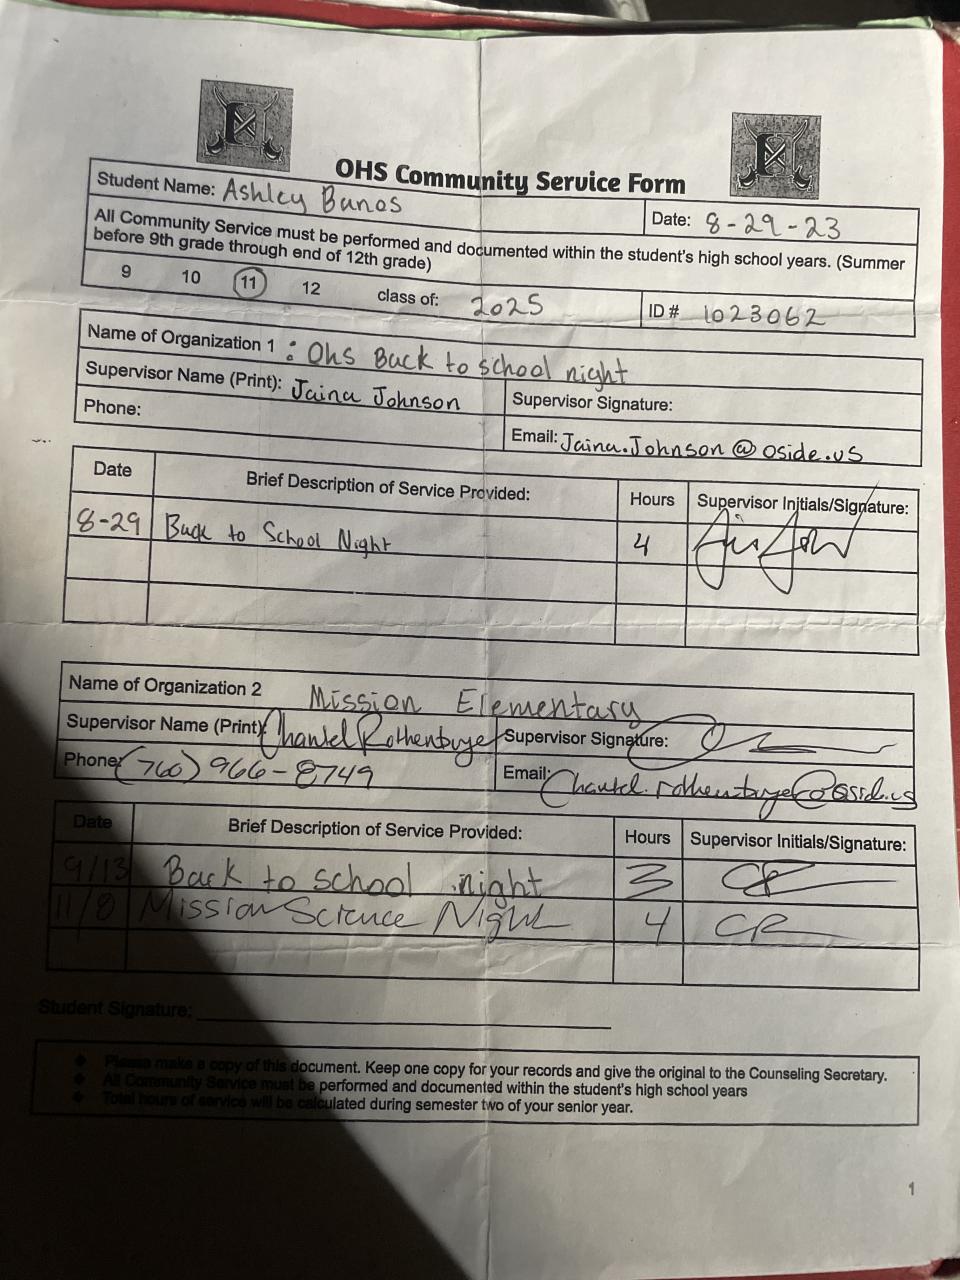 OHS Community Service Form
Student Name: Ashley Banos
Date: 8-29-23
All Community Service must be performed and documented within the student's high school years. (Summer
before 9th grade through end of 12th grade)
9 10 11 12 class of: 2025 ID # 1023062
Name of Organization 1 : Ohs Back to school night
Supervisor Name (Print): Jaina Johnson Supervisor Signature:
Phone: Email: Jaina.Johnson@oside.us
Date Brief Description of Service Provided: Hours Supervisor Initials/Signature:
8-29 Back to School Night 4
Name of Organization 2 Mission Elementary
Supervisor Name (Print): Chantel Rothenbuye Supervisor Signature:
Phone: (760) 966-8749 Email: Chantel.rothenbuye@oside.us
Date Brief Description of Service Provided: Hours Supervisor Initials/Signature:
9/13 Back to school night 3 CR
11/8 Mission Science Night 4 CR
Student Signature:
Please make a copy of this document. Keep one copy for your records and give the original to the Counseling Secretary.
All Community Service must be performed and documented within the student's high school years
Total hours of service will be calculated during semester two of your senior year.
1